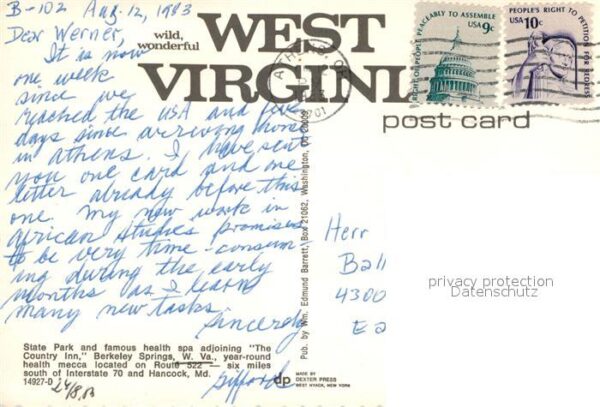 B-102 Aug. 12, 1983
Dear Werner,
It is now
one week
since we
reached the USA and five
days since arriving home
in Athens. I have sent
you one card and one
letter already before this
one. My new work in
African Studies promises
to be very time-consum
ing during the early
months as I learn
many new tasks.
Sincerely
Gifford
wild,
wonderful
WEST
VIRGINIA
post card
RIGHT OF PEOPLE PEACEABLY TO ASSEMBLE
USA 9c
PEOPLE'S RIGHT TO PETITION FOR REDRESS
USA 10c
ATHENS, OH
Pub. by Wm. Edmund Barrett, Box 21062, Washington, DC 20009
Herr
Ball
4300
E
privacy protection
Datenschutz
State Park and famous health spa adjoining "The
Country Inn," Berkeley Springs, W. Va., year-round
health mecca located on Route 522 — six miles
south of Interstate 70 and Hancock, Md.
14927-D
24/8.83
dp
MADE BY
DEXTER PRESS
WEST NYACK, NEW YORK